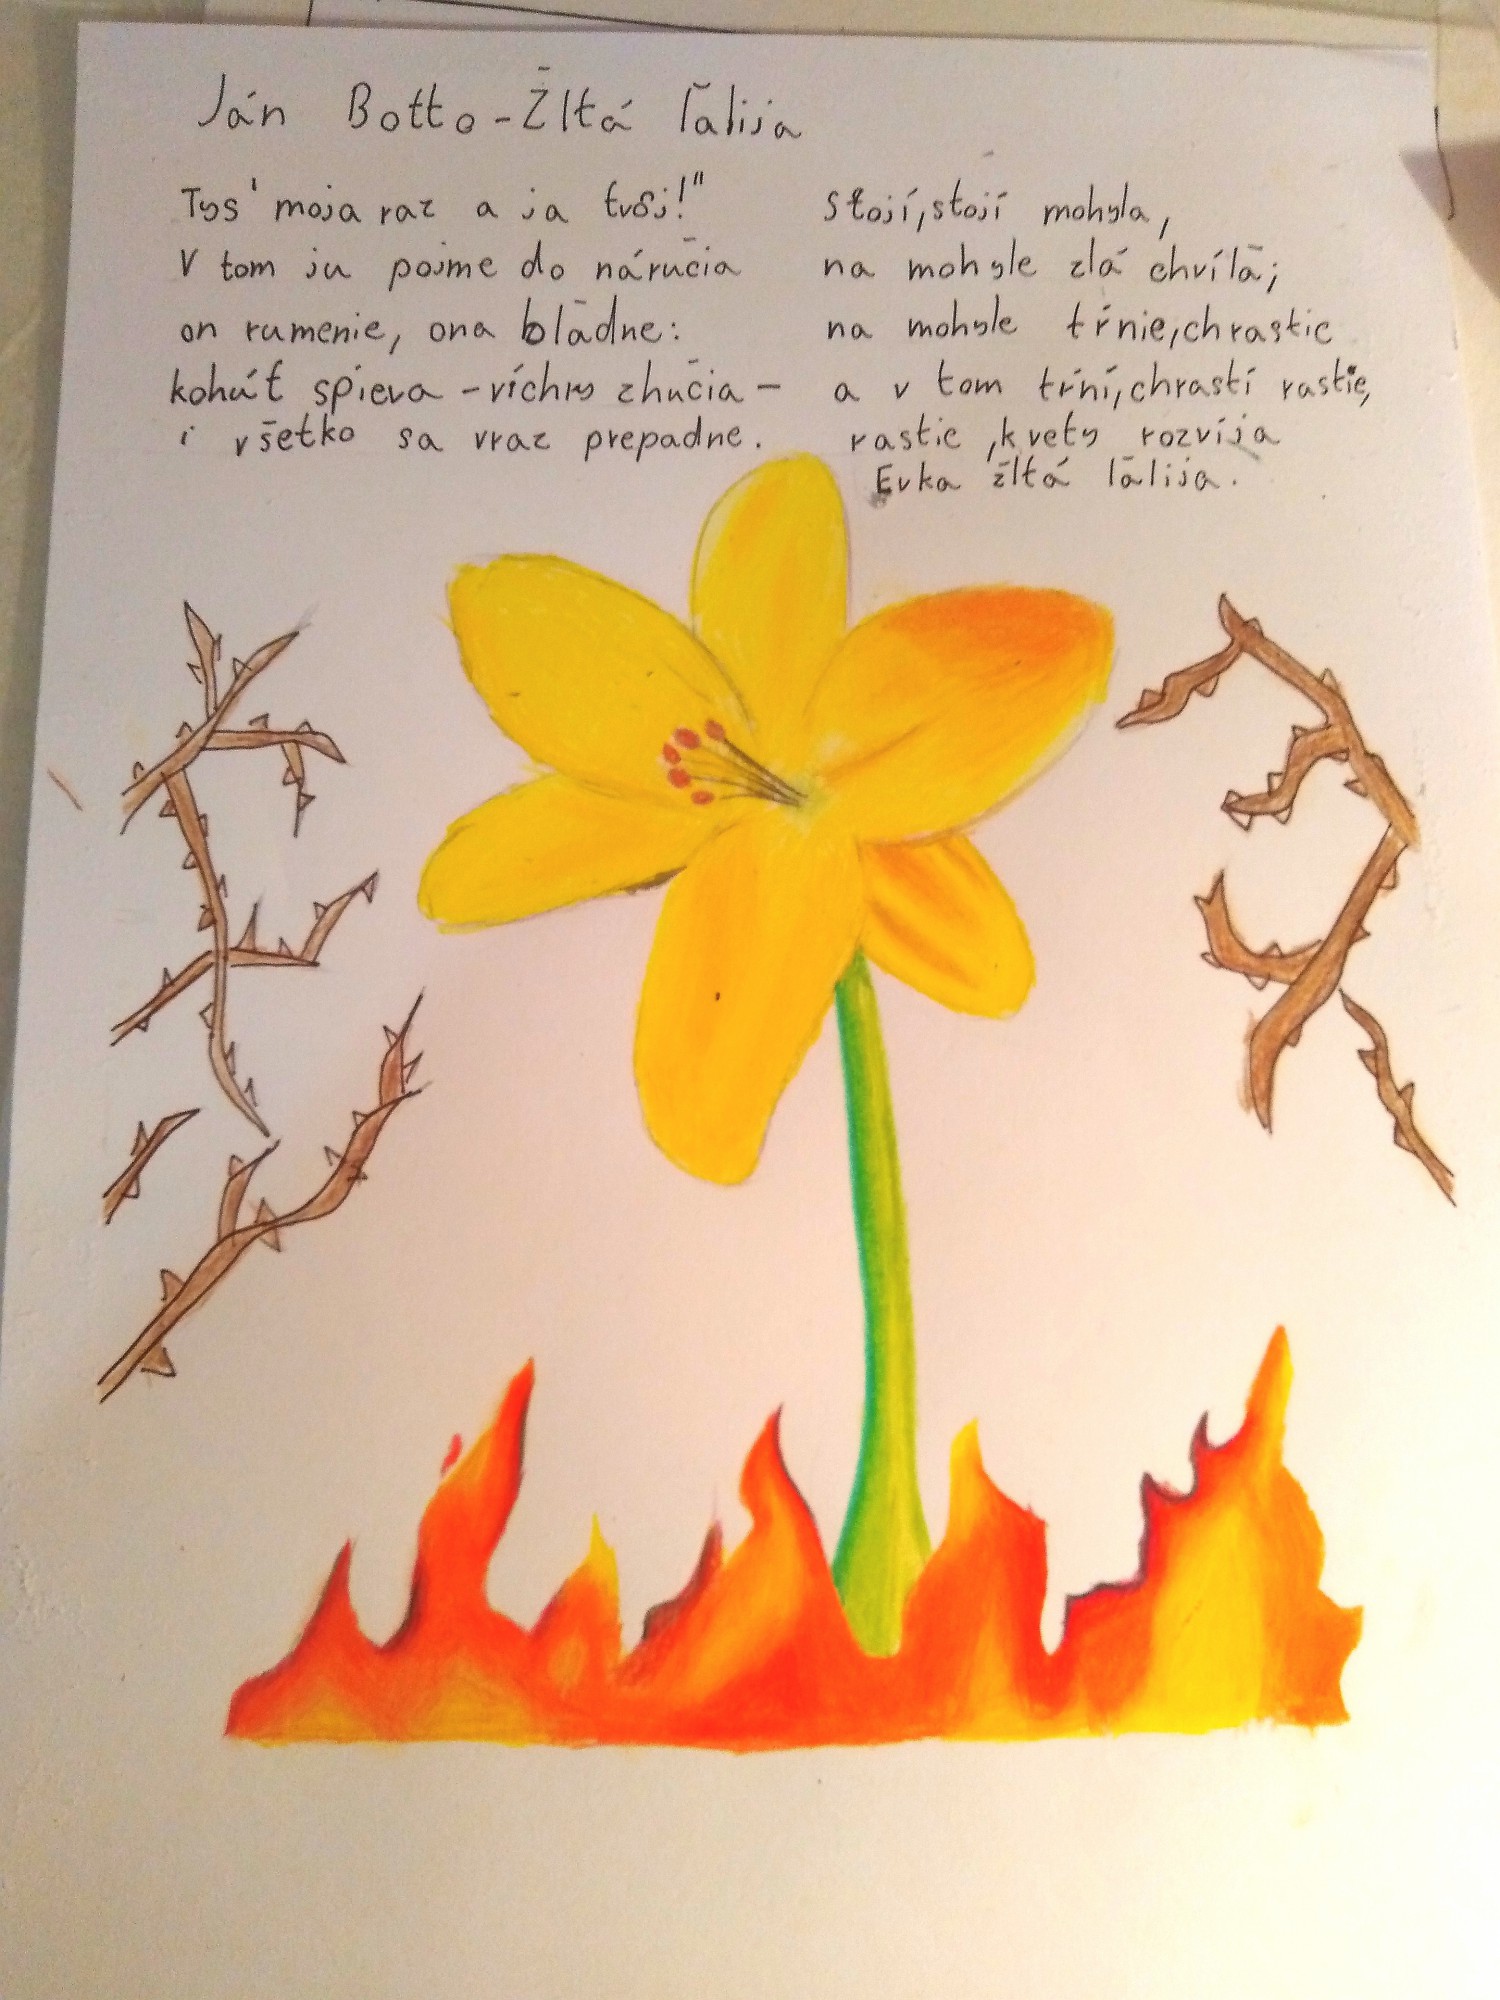 Ján Botto - Žltá ľalija
Tys' moja raz a ja tvôj!"
V tom ju pojme do náručia
on rumenie, ona bľadne:
kohút spieva - víchry zhučia -
i všetko sa vraz prepadne.
Stojí, stojí mohyla,
na mohyle zlá chvíľa;
na mohyle tŕnie, chrastie
a v tom tŕní, chrastí rastie,
rastie, kvety rozvíja
Evka žltá ľalija.